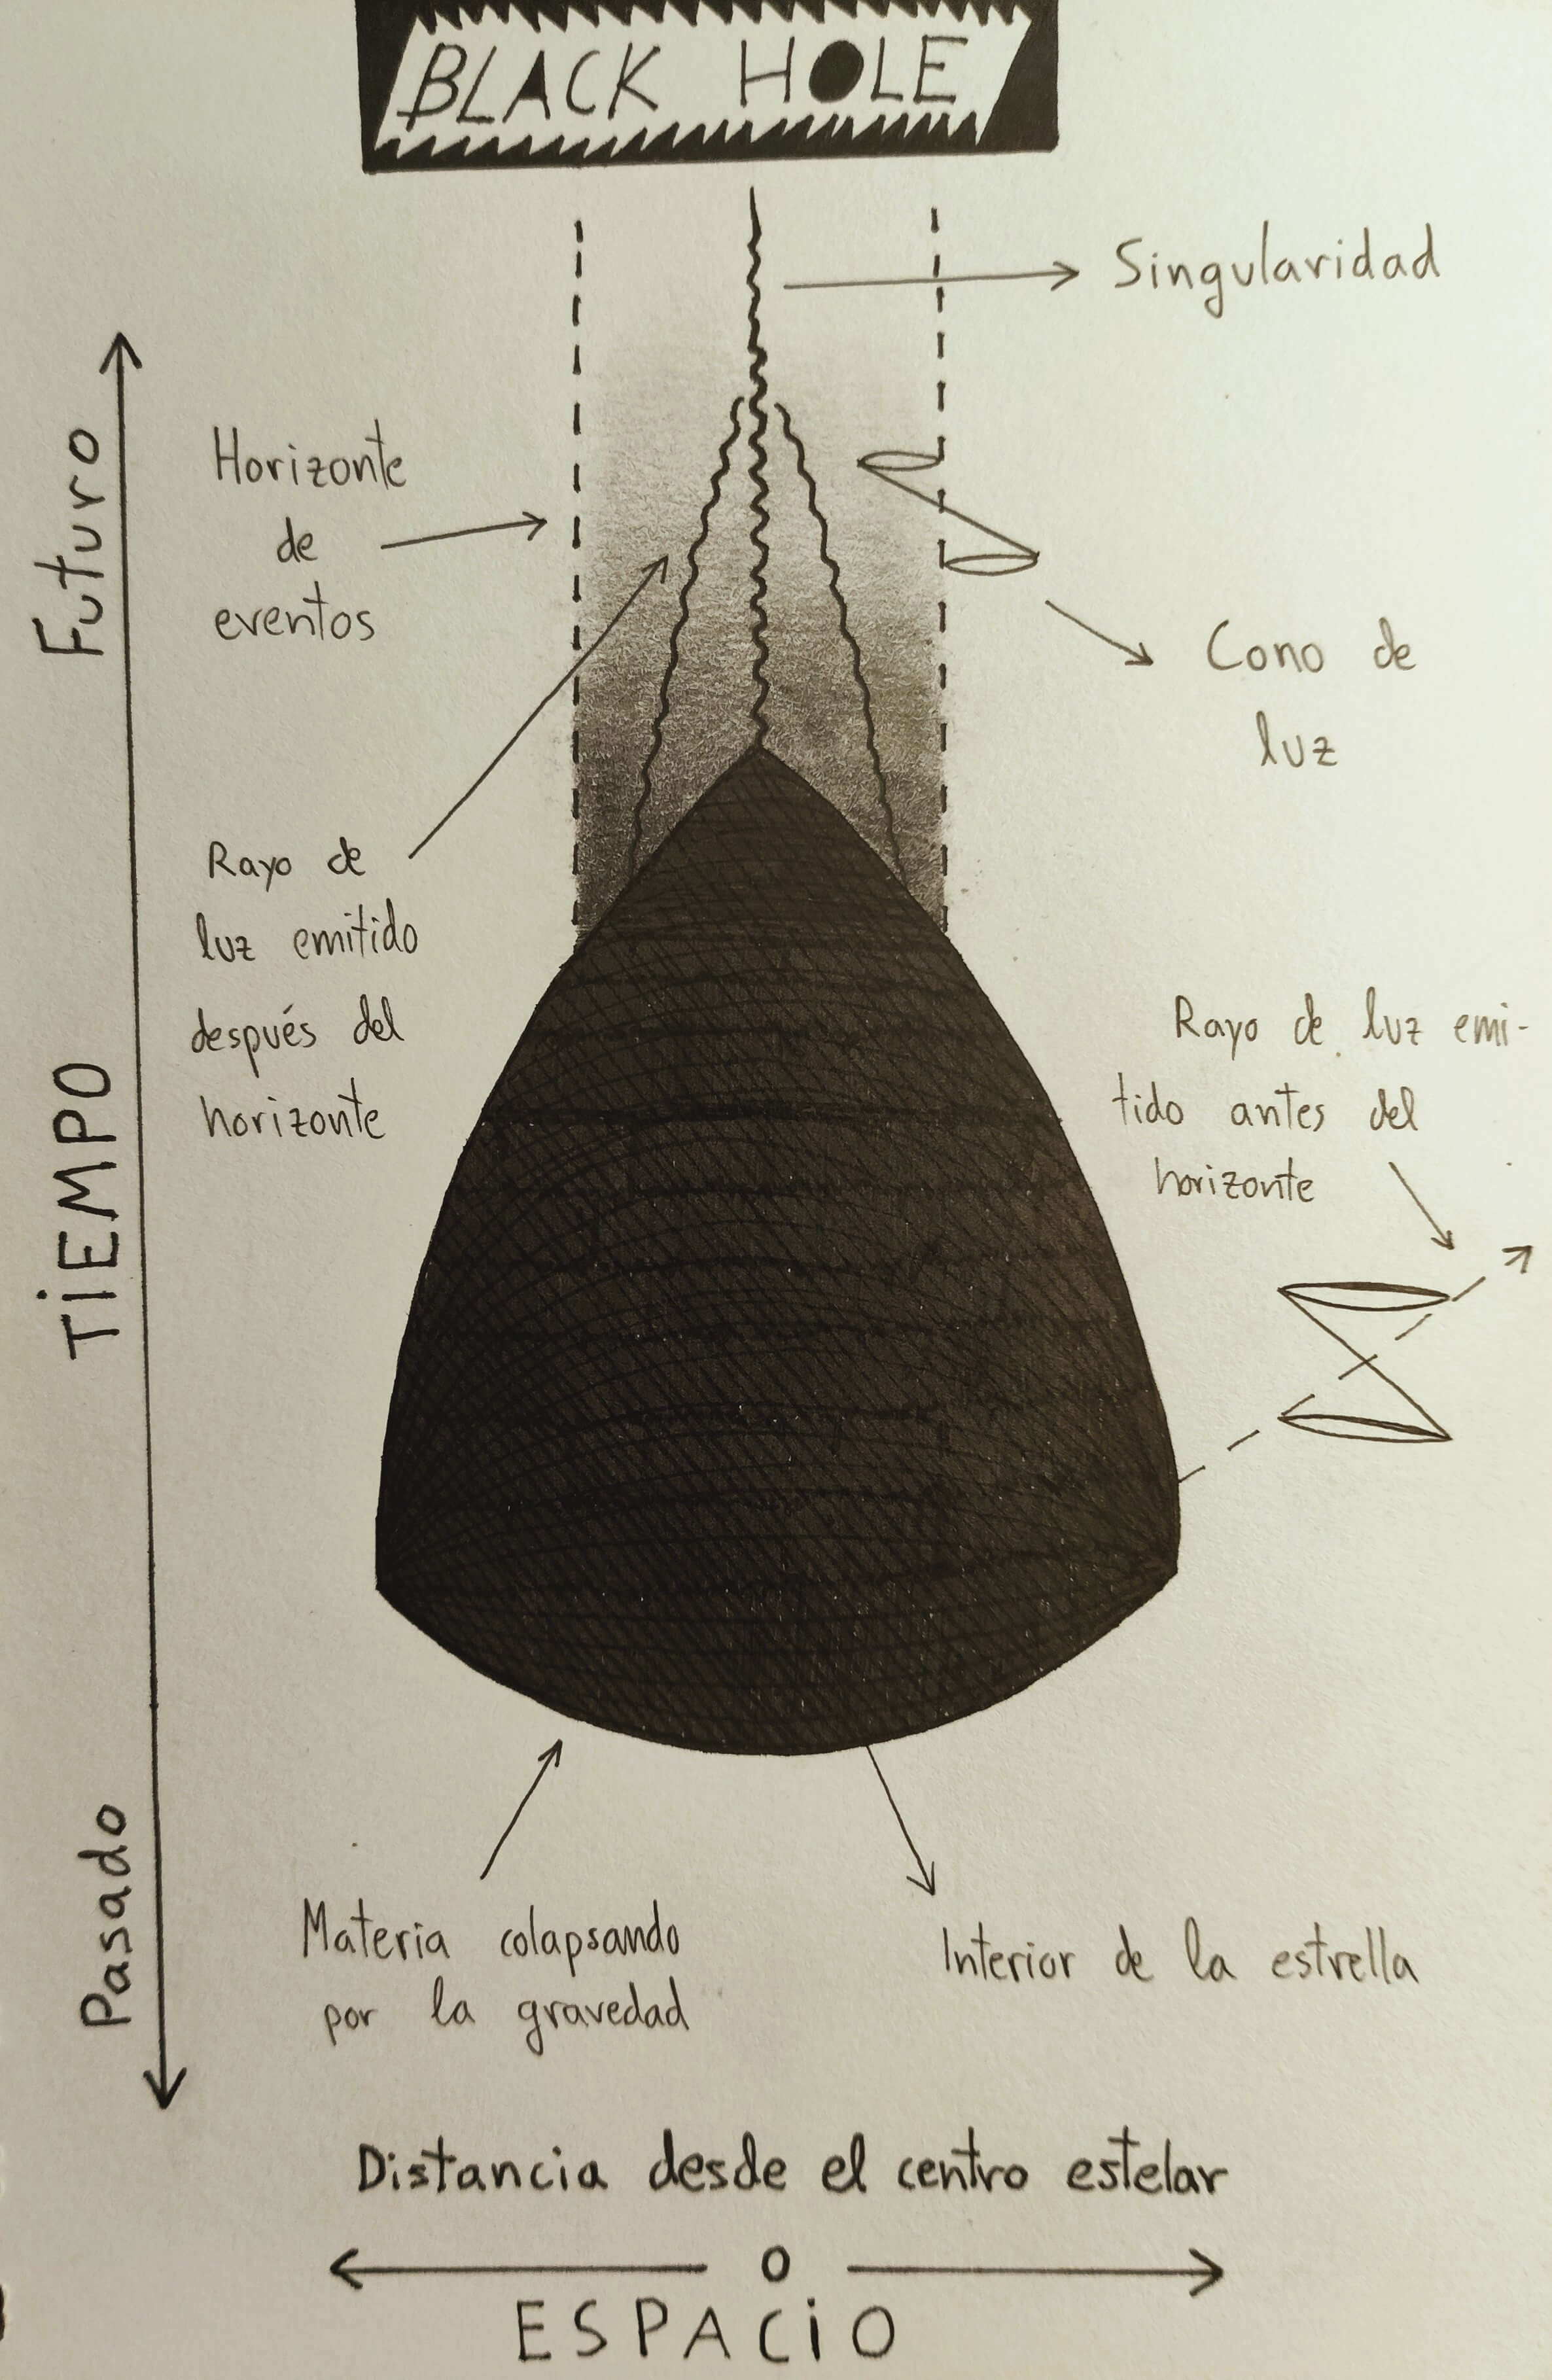 BLACK HOLE
Singularidad
Futuro
Horizonte
de
eventos
Cono de
luz
Rayo de
luz emitido
después del
horizonte
Rayo de luz emi-
tido antes del
horizonte
TiEMPO
Pasado
Materia colapsando
por la gravedad
Interior de la estrella
Distancia desde el centro estelar
0
ESPACiO